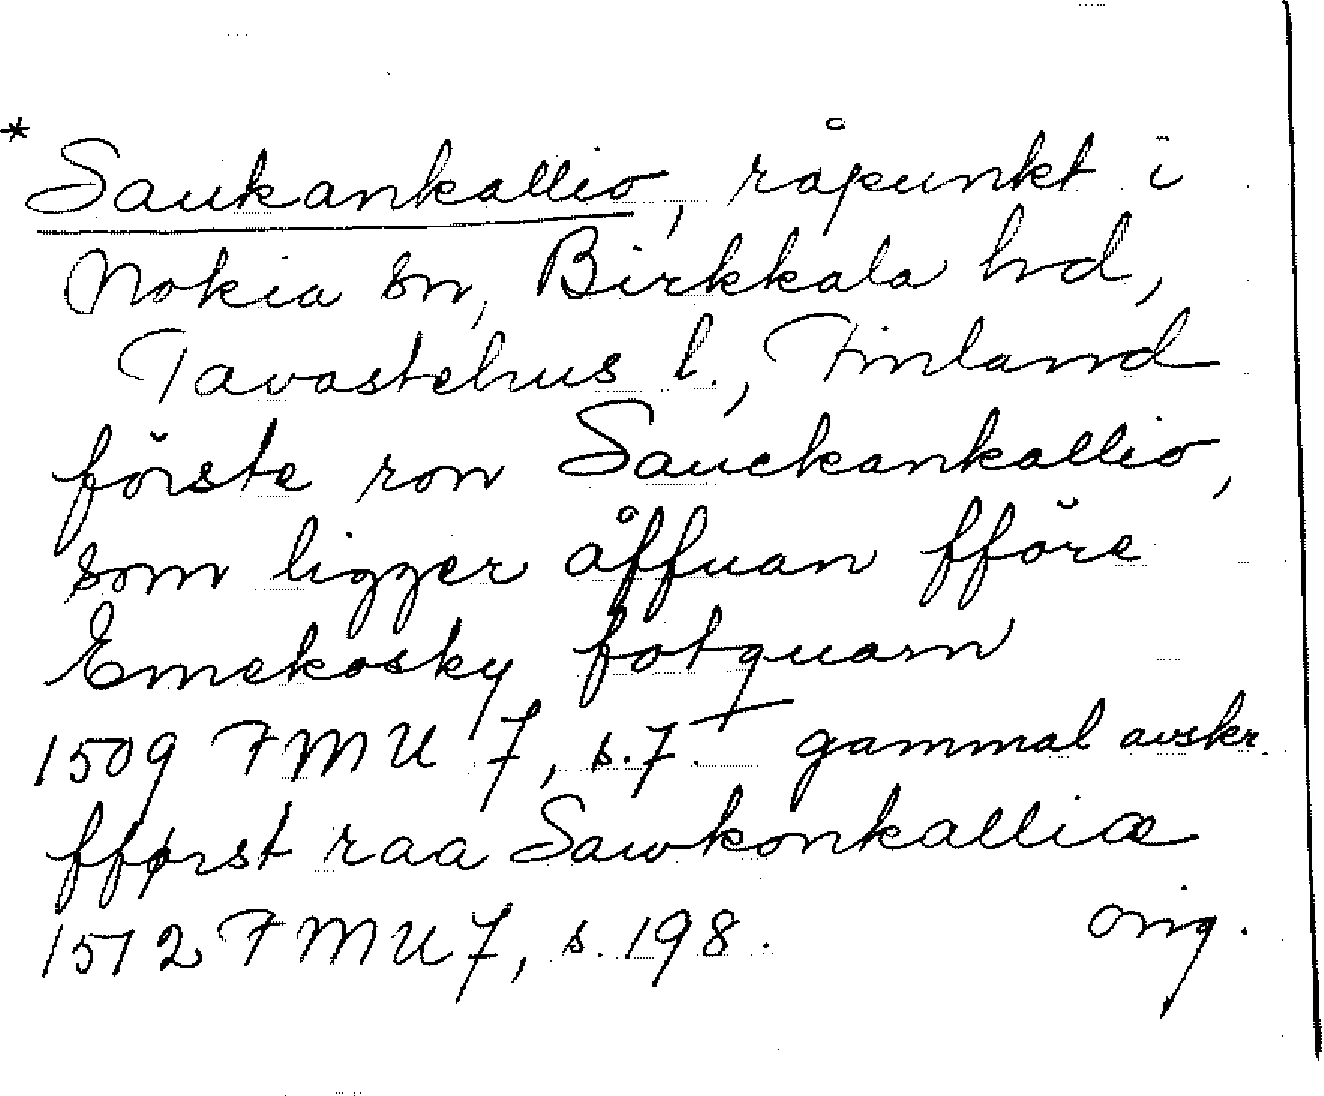 * Saukankallio, råpunkt i
Nokia sn, Birkkala hd,
Tavastehus l., Finland
förste ron Sauckankallio,
som ligger åffuan fföre
Emekosky fotquarn
1509 FMU 7, s. 7. gammal avskr.
fførst raa Sawkonkalliæ
1512 FMU 7, s. 198. orig.